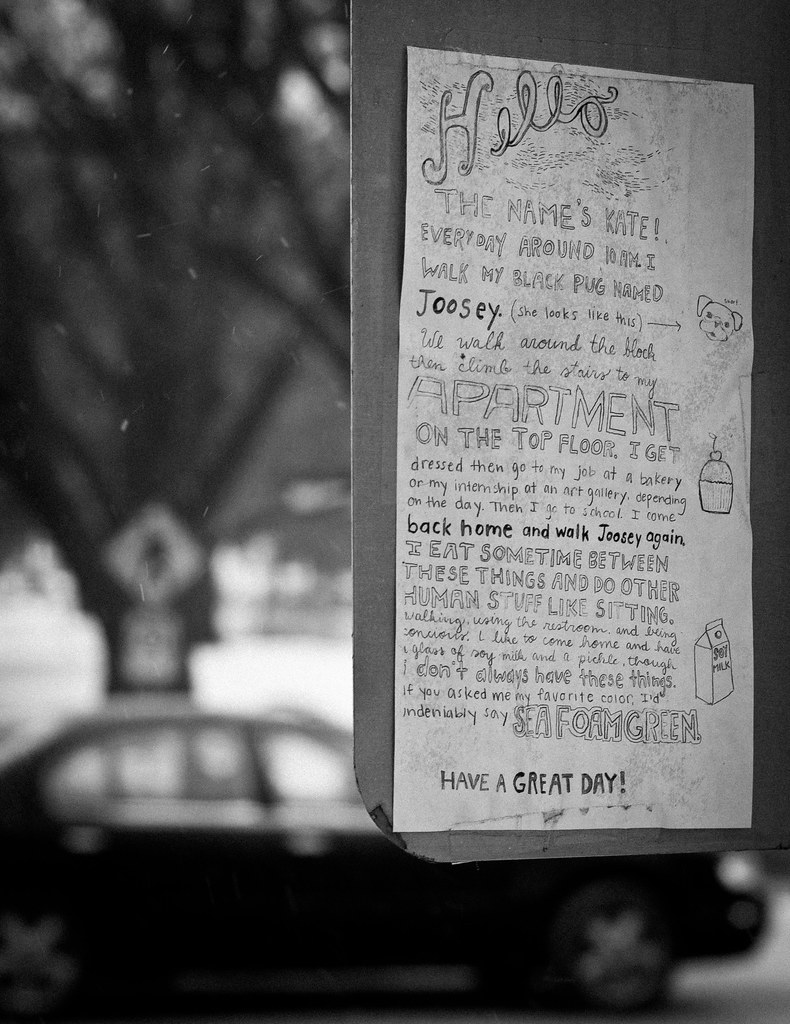 Hello
THE NAME'S KATE!
EVERYDAY AROUND 10 AM. I
WALK MY BLACK PUG NAMED
Joosey. (she looks like this) →
snort
We walk around the block
then climb the stairs to my
APARTMENT
ON THE TOP FLOOR. I GET
dressed then go to my job at a bakery
or my internship at an art gallery, depending
on the day. Then I go to school. I come
back home and walk Joosey again.
I EAT SOMETIME BETWEEN
THESE THINGS AND DO OTHER
HUMAN STUFF LIKE SITTING,
walking, using the restroom, and being
concious. I like to come home and have
a glass of soy milk and a pickle, though
i don't always have these things.
SOY
MILK
If you asked me my favorite color, I'd
indeniably say SEA FOAM GREEN.
HAVE A GREAT DAY!